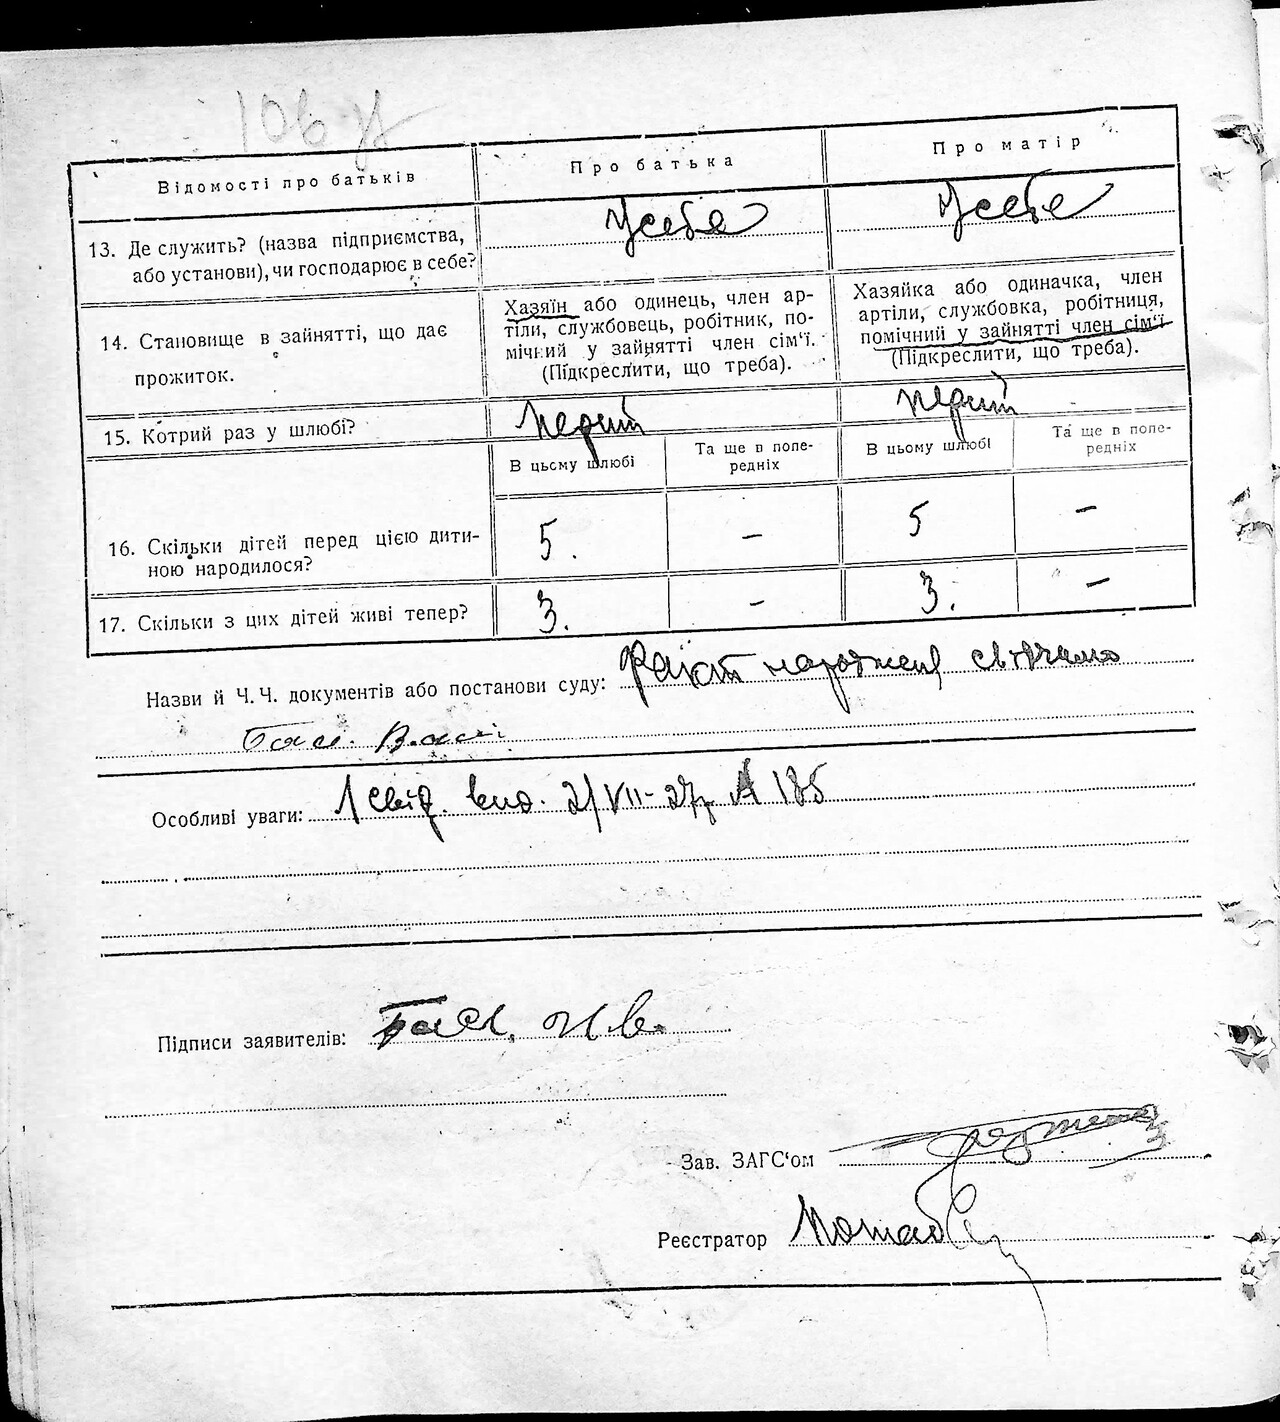 Відомості про батьків
Про батька
Про матір
13. Де служить? (назва підприємства,
або установи), чи господарює в себе?
У себе
У себе
14. Становище в зайнятті, що дає
прожиток.
Хазяїн або одинець, член ар-
тіли, службовець, робітник, по-
мічний у зайнятті член сім'ї.
(Підкреслити, що треба).
Хазяйка або одиначка, член
артіли, службовка, робітниця,
помічний у зайнятті член сім'ї
(Підкреслити, що треба).
15. Котрий раз у шлюбі?
перший
перший
В цьому шлюбі
Та ще в попе-
редніх
В цьому шлюбі
Та ще в попе-
редніх
16. Скільки дітей перед цією дити-
ною народилося?
5. – 5 –
17. Скільки з цих дітей живі тепер?
3. – 3. –
Назви й Ч. Ч. документів або постанови суду: Факт народження
Особливі уваги: 1 свід. вид. 21/VII-27р 185
Підписи заявителів:
Зав. ЗАГС'ом
Реєстратор